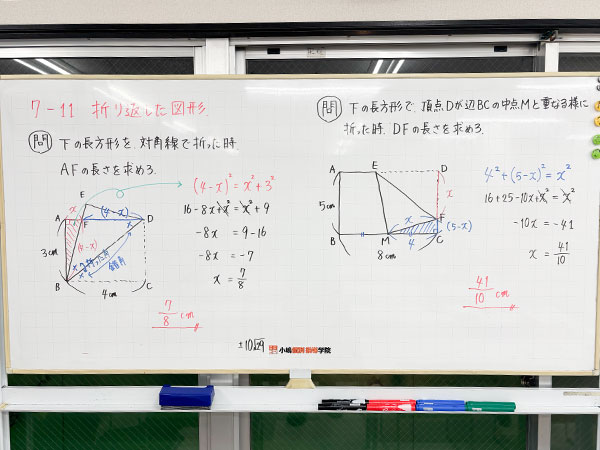 7-11 折り返した図形
問 下の長方形を対角線で折った時
AFの長さを求めろ.
E
A
x
(4-x)
F
D
3cm
(4-x)
錯角
B
4cm
C
(4-x)² = x² + 3²
16 - 8x + x² = x² + 9
-8x = 9 - 16
-8x = -7
x = 7/8
7/8 cm
問 下の長方形で、頂点Dが辺BCの中点Mと重なる様に
折った時、DFの長さを求めろ.
A
E
D
5cm
x
x
F
(5-x)
B
M
4
C
8cm
4² + (5-x)² = x²
16 + 25 - 10x + x² = x²
-10x = -41
x = 41/10
41/10 cm
小嶋個別指導学院